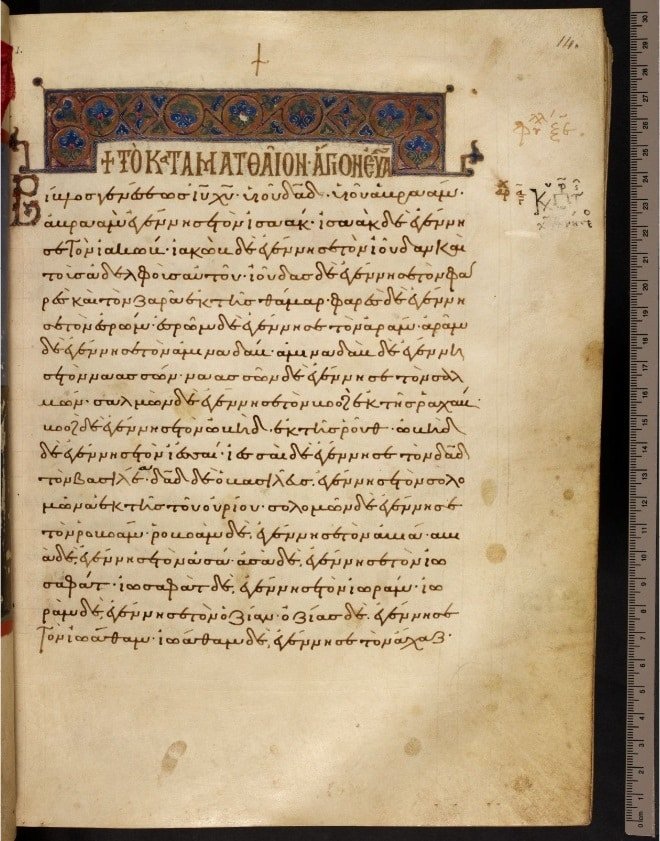 14.
+ΤΟ ΚΑΤΑ ΜΑΤΘΑΙΟΝ ΑΓΙΟΝ ΕΥΑ
Βίβλος γενέσεως ἰυ χυ υἱοῦ δαδ υἱοῦ ἀβραάμ·
ἀβραὰμ ἐγέννησε τὸν ἰσαάκ· ἰσαὰκ δὲ ἐγέννη
σε τὸν ἰακώβ· ἰακὼβ δὲ ἐγέννησε τὸν ἰούδαν καὶ
τοὺς ἀδελφοὺς αὐτοῦ· ἰούδας δὲ ἐγέννησε τὸν φα
ρὲς καὶ τὸν ζαρὰ ἐκ τῆς θάμαρ· φαρὲς δὲ ἐγέννη
σε τὸν ἐσρώμ· ἐσρὼμ δὲ ἐγέννησε τὸν ἀράμ· ἀρὰμ
δὲ ἐγέννησε τὸν ἀμιναδάβ· ἀμιναδὰβ δὲ ἐγέννη
σε τὸν ναασσών· ναασσὼν δὲ ἐγέννησε τὸν σαλ
μών· σαλμὼν δὲ ἐγέννησε τὸν βοὸζ ἐκ τῆς ῥαχάβ·
βοὸζ δὲ ἐγέννησε τὸν ὠβὴδ ἐκ τῆς ῥούθ· ὠβὴδ
δὲ ἐγέννησε τὸν ἰεσσαί· ἰεσσαὶ δὲ ἐγέννησε τὸν δαδ
τὸν βασιλέα· δαδ δὲ ὁ βασιλεὺς ἐγέννησε τὸν σολο
μῶνα ἐκ τῆς τοῦ οὐρίου· σολομὼν δὲ ἐγέννησε
τὸν ῥοβοάμ· ῥοβοὰμ δὲ ἐγέννησε τὸν ἀβιά· ἀβι
ὰ δὲ ἐγέννησε τὸν ἀσά· ἀσὰ δὲ ἐγέννησε τὸν ἰω
σαφάτ· ἰωσαφὰτ δὲ ἐγέννησε τὸν ἰωράμ· ἰω
ρὰμ δὲ ἐγέννησε τὸν ὀζίαν· ὀζίας δὲ ἐγέννησε
τὸν ἰωάθαμ· ἰωάθαμ δὲ ἐγέννησε τὸν ἄχαζ·